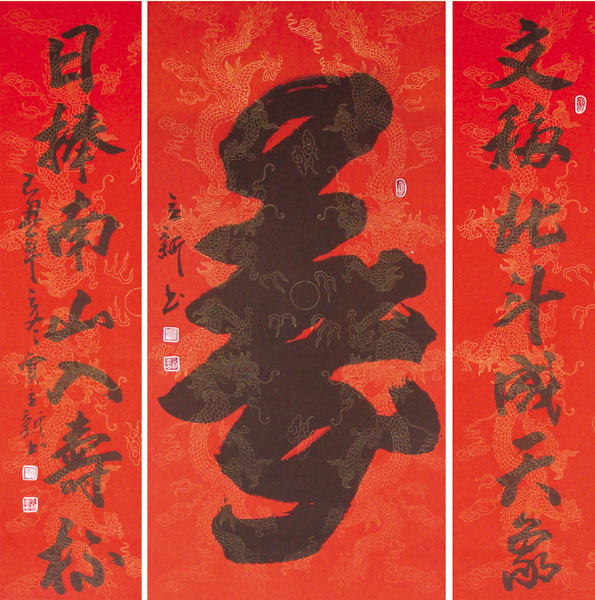 文移北斗成天象
壽
立新书
日捧南山入壽杯
己丑年立冬贾立新书